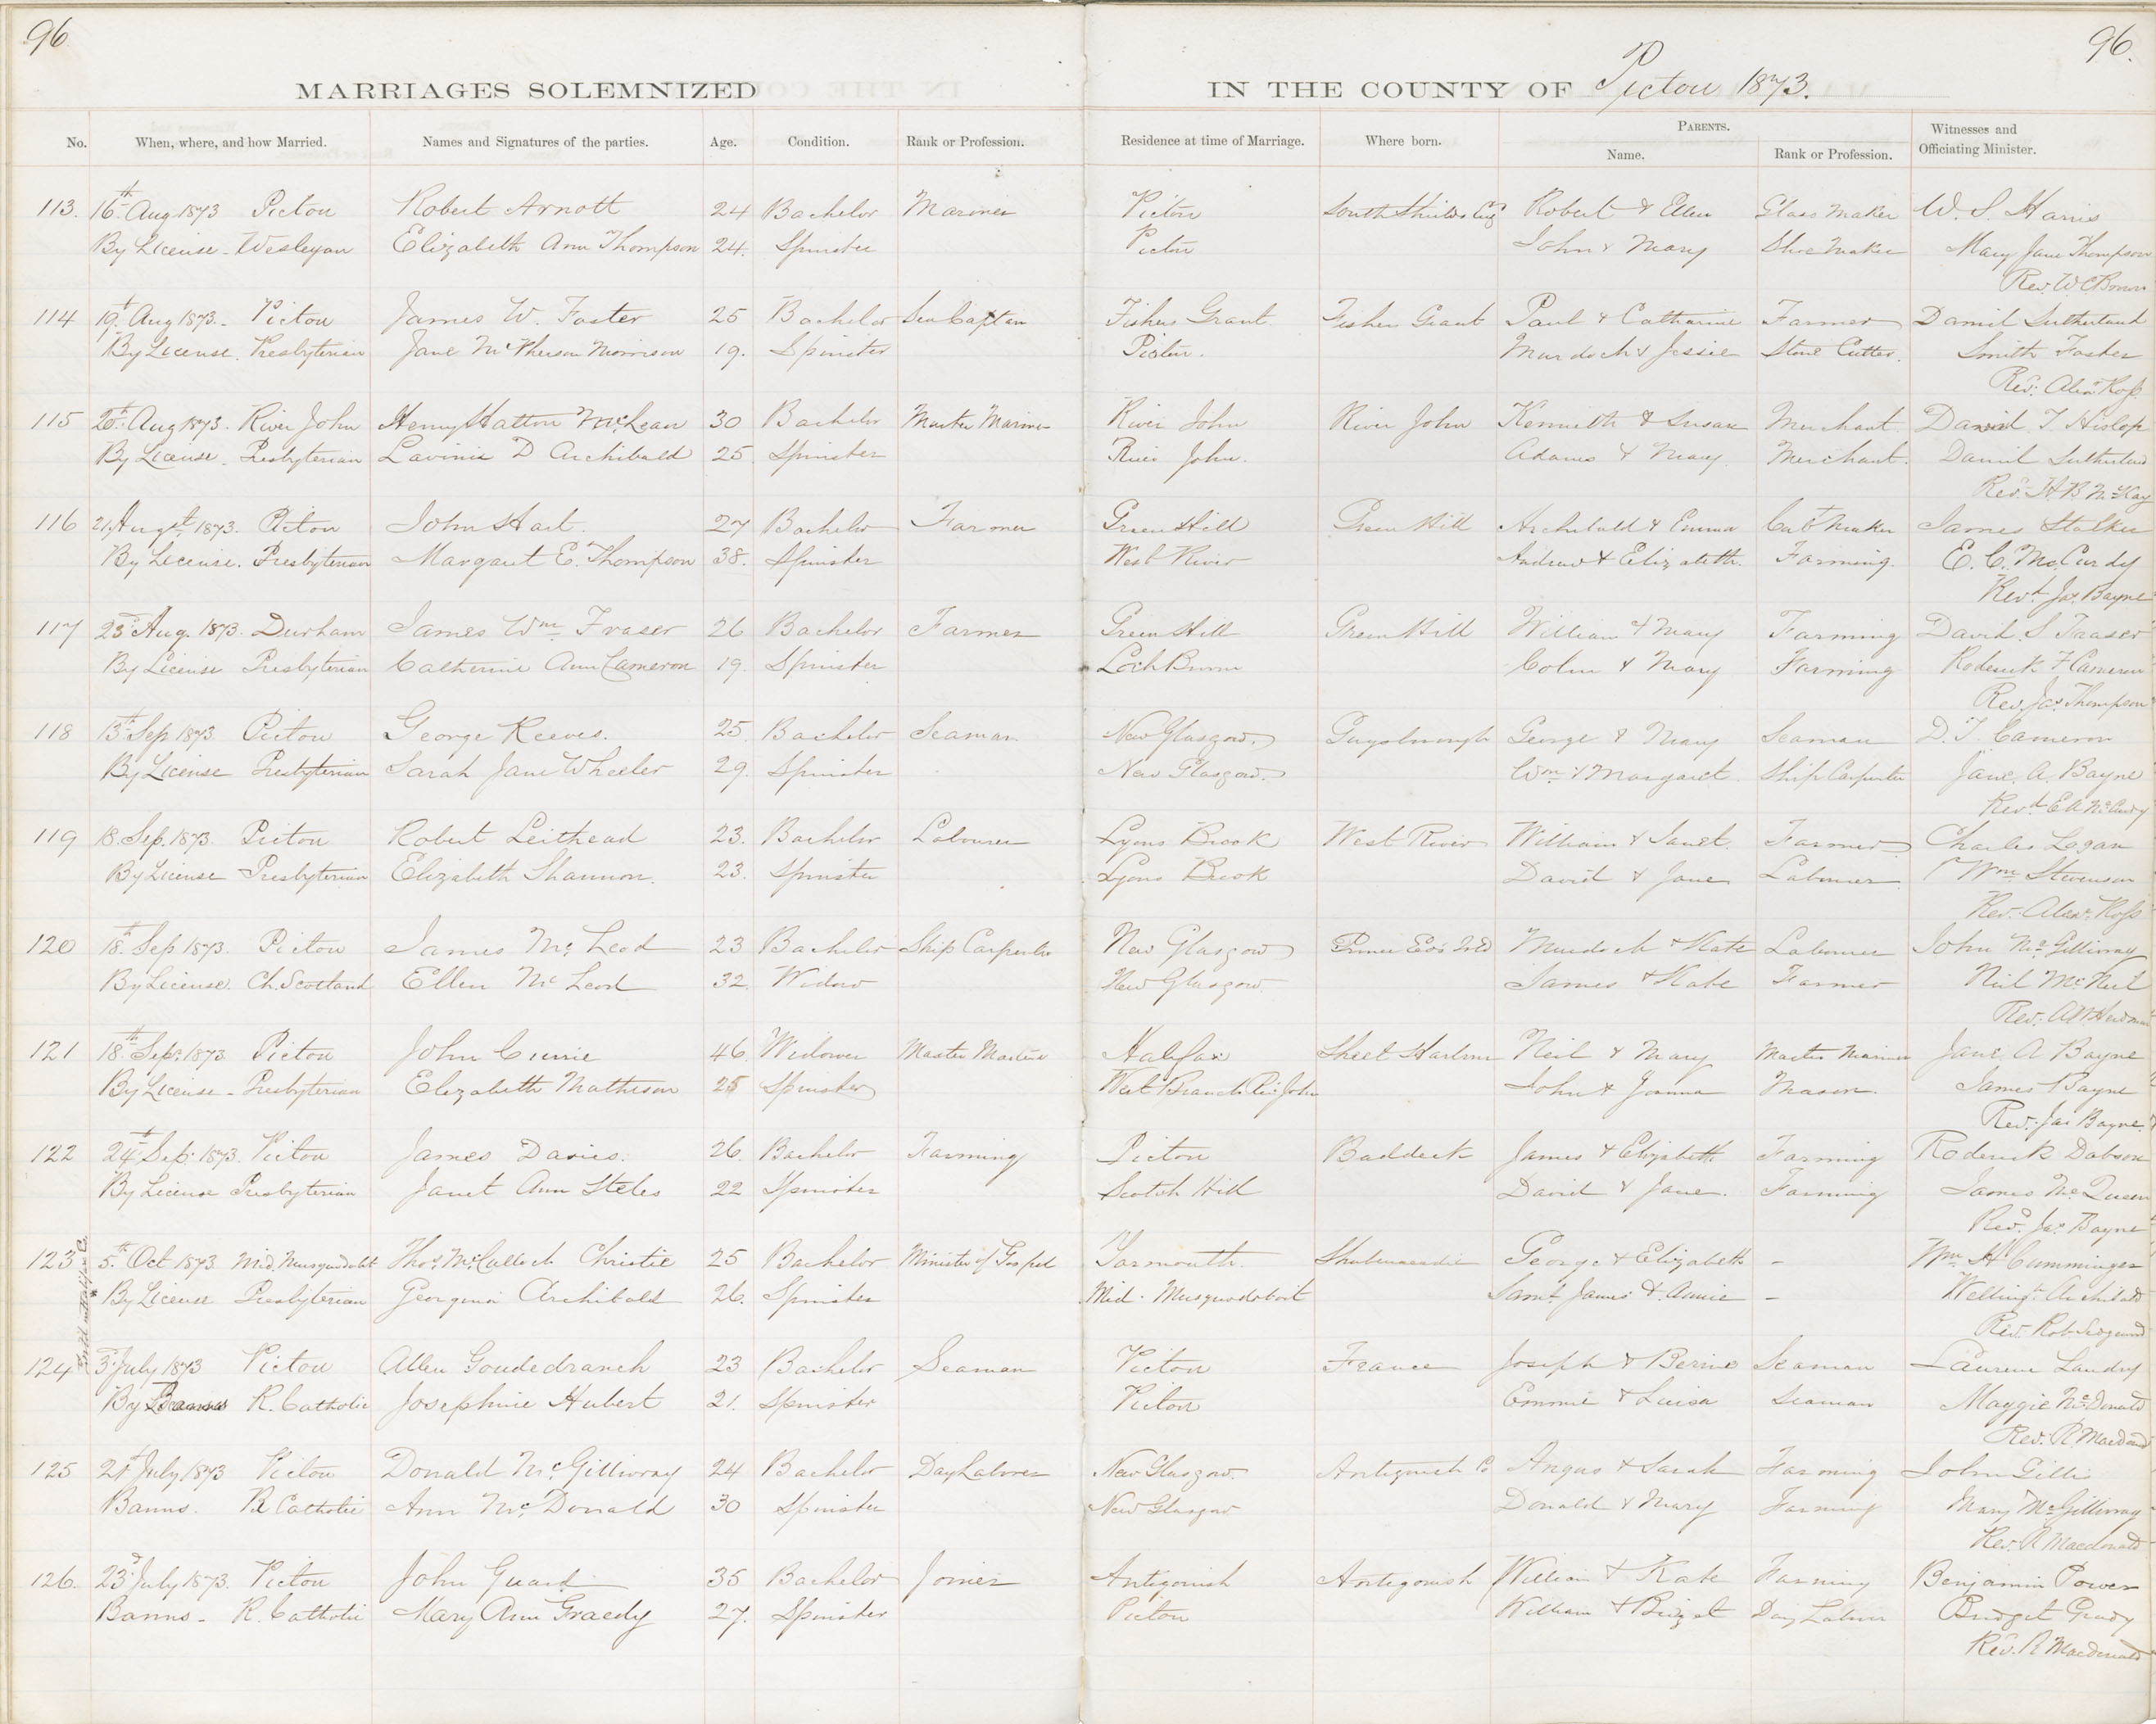 96
96.
MARRIAGES SOLEMNIZED IN THE COUNTY OF Pictou 1873.
No. When, where, and how Married. Names and Signatures of the parties. Age. Condition. Rank or Profession. Residence at time of Marriage. Where born. PARENTS. Name. Rank or Profession. Witnesses and Officiating Minister.
113. 16th Aug 1873 Pictou Robert Arnott 24 Bachelor Mariner Pictou South Shields Eng Robert & Ellen Glass Maker W. S. Harris
By License - Wesleyan Elizabeth Ann Thompson 24. Spinster Pictou John & Mary Shoe Maker Mary Jane Thompson
Rev. W C Brown
114 19th Aug 1873. - Pictou James W. Foster 25 Bachelor Sea Captan Fishers Grant Fishers Grant Paul & Catharine Farmer Daniel Sutherland
By License. Presbyterian Jane McPherson Morrison 19. Spinster Pictou. Murdoch & Jessie Stone Cutter. Smith Foster
Rev. Alexr Ross
115 20th Aug 1873. River John Henry Hatton McLean 30 Bachelor Master Mariner River John River John Kenneth & Susan Merchant David T Hislop
By License - Presbyterian Lavinia D Archibald 25. Spinster River John. Adams & Mary Merchant. Daniel Sutherland
Rev. H B McKay
116 21 Augst 1873. Pictou John Hart. 27 Bachelor Farmer Green Hill Green Hill Archibald & Emma Cabt Maker James Stalker
By License. Presbyterian Margaret E. Thompson 38. Spinster West River Andrew & Elizabeth. Farming. E. C. McCurdy
Revd Jas Bayne
117 23d Aug. 1873. Durham James Wm Fraser 26 Bachelor Farmer Green Hill Green Hill William & Mary Farming David S Fraser
By License Presbyterian Catherine Ann Cameron 19. Spinster Loch Broom Colin & Mary Farming Roderick F Cameron
Rev. Jas Thompson
118 13th Sep 1873 Pictou George Reeves. 25. Bachelor Seaman New Glasgow. Guysborough George & Mary Seaman D. T. Cameron
By License Presbyterian Sarah Jane Wheeler 29. Spinster New Glasgow. Wm & Margaret. Ship Carpenter Jane. A. Bayne
Revd E A McCurdy
119 18. Sep. 1873. Pictou Robert Leithead 23. Bachelor Labourer Lyons Brook West River William & Janet. Farmer Charles Logan
By License Presbyterian Elizabeth Shannon. 23. Spinster Lyons Brook David & Jane Labourer Wm Stevenson
Rev. Alexr Ross
120 18th Sep 1873. Pictou James McLeod 23 Bachelor Ship Carpenter New Glasgow Prince Eds Isld Murdoch & Kate Labourer John McGillivray
By License. Ch. Scotland Ellen McLeod 32. Widow New Glasgow. James & Kate Farmer Neil McNeil
Rev. A W Herdman
121 18th Sepr 1873 Pictou John Currie 46. Widower Master Mariner Halifax Sheet Harbour Neil & Mary Master Mariner Jane A Bayne
By License - Presbyterian Elizabeth Mathison 25 Spinster West Branch Riv. John John & Joanna Mason. James Bayne
Rev. Jas Bayne.
122 24th Sep. 1873. Pictou James Davies. 26. Bachelor Farming Pictou Baddeck James & Elizabeth Farming Roderick Dobson
By License Presbyterian Janet Ann Steles 22 Spinster Scotch Hill David & Jane. Farming James McQueen
Revd Jas Bayne
123 5th Oct 1873 Mid. Musquodobit Thos McCulloch Christie 25 Bachelor Minister of Gospel Yarmouth. Shubenacadie George & Elizabeth - Wm H Cummings
By License Presbyterian Georgina Archibald 26. Spinster Mid. Musquodoboit Saml. James & Annie - Wellingt. Archibald
Rev. Rob. Sedgewick
124 3d July 1873 Pictou Allen Goudedranch 23 Bachelor Seaman Pictou France Joseph & Berine Seaman Laurene Landry
By Banns R. Catholic Josephine Hubert 21. Spinster Pictou Emmie & Luisa Seaman Maggie McDonald
Rev. R. Macdonald
125 21st July 1873 Pictou Donald McGillivray 24 Bachelor Day Labourer New Glasgow. Antigonish Co Angus & Sarah Farming John Gillis
Banns. R Catholic Ann McDonald 30 Spinster New Glasgow Donald & Mary Farming Mary McGillivray
Rev. R Macdonald
126. 23d July 1873. Pictou John Guard 35 Bachelor Joiner Antigonish Antigonish William & Kate Farming Benjamin Power
Banns - R. Catholic Mary Ann Graedy 27. Spinster Pictou William & Bridget Day Labour Bridget Grady
Rev. R Macdonald